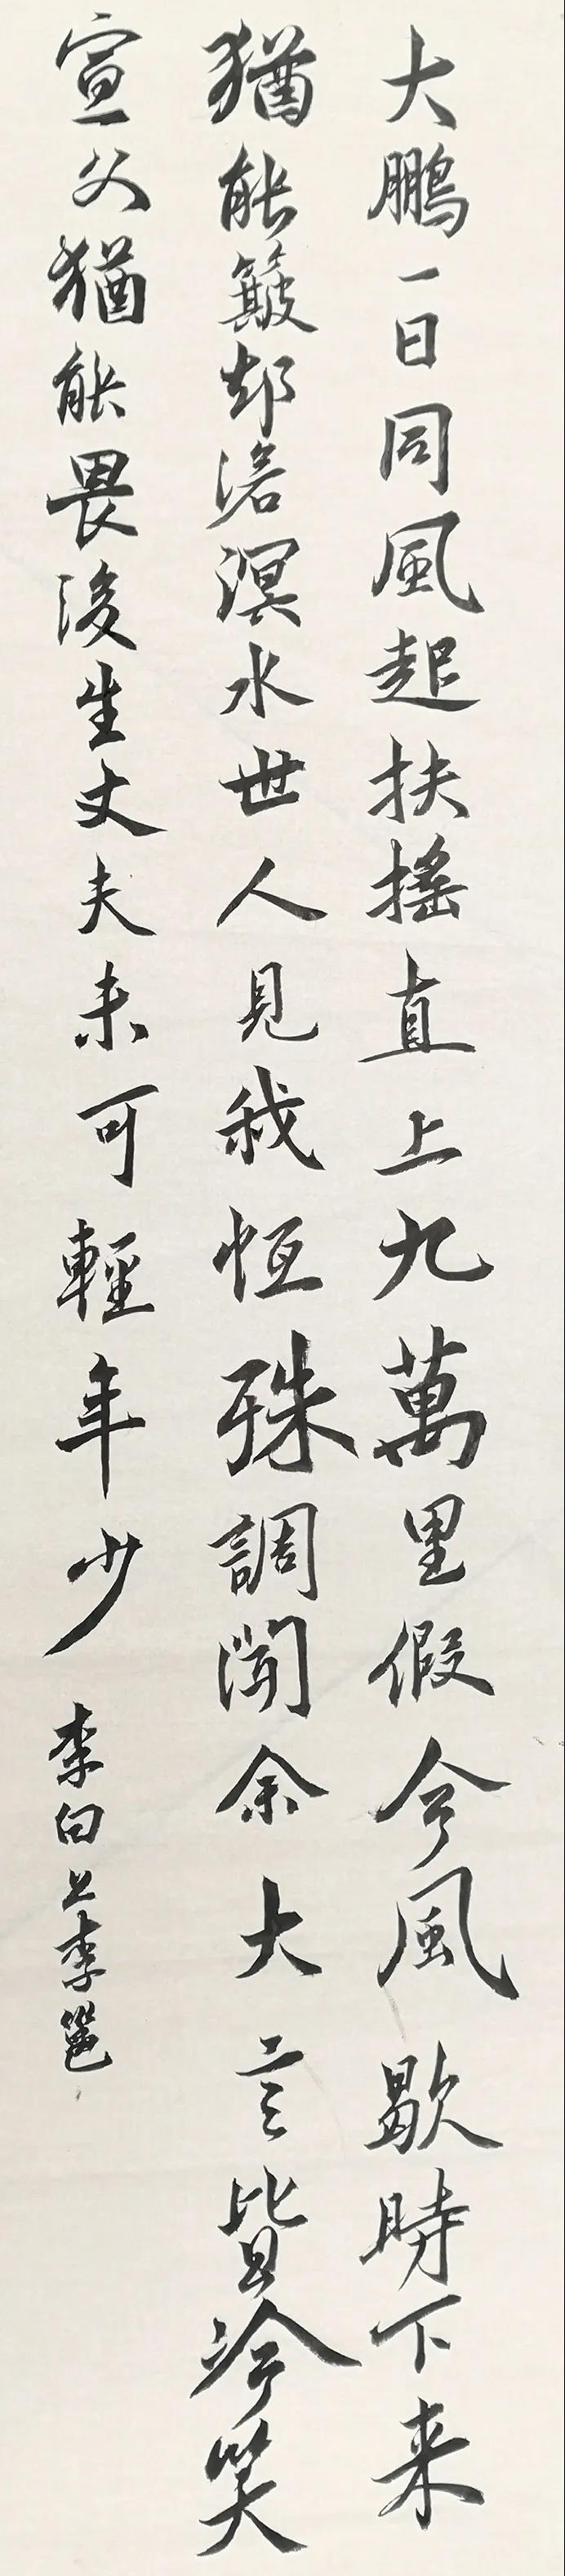 大鵬一日同風起扶摇直上九萬里假令風歇時下来
猶能簸却滄溟水世人見我恒殊調聞余大言皆冷笑
宣父猶能畏後生丈夫未可輕年少 李白上李邕